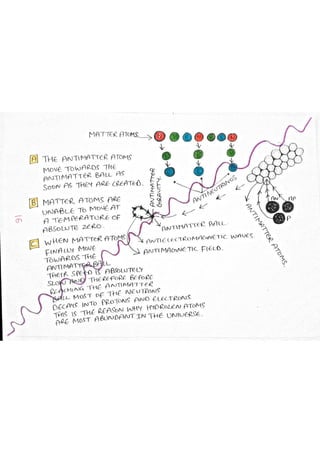 MATTER ATOMS
A THE ANTIMATTER ATOMS
MOVE TOWARDS THE
ANTIMATTER BALL AS
SOON AS THEY ARE CREATED.
B MATTER ATOMS ARE
UNABLE TO MOVE AT
A TEMPERATURE OF
ABSOLUTE ZERO.
C WHEN MATTER ATOMS
FINALLY MOVE
TOWARDS THE
ANTIMATTER BALL
THEIR SPEED IS ABSOLUTELY
SLOW AND THEREFORE BEFORE
REACHING THE ANTIMATTER
BALL MOST OF THE NEUTRONS
DECAYS INTO PROTONS AND ELECTRONS
THIS IS THE REASON WHY HYDROGEN ATOMS
ARE MOST ABUNDANT IN THE UNIVERSE.
ANTIMATTER
GRAVITY.
ANTINEUTRONS
ANTIMATTER BALL.
ANTIELECTROMAGNETIC WAVES.
ANTIMAGNETIC FIELD.
ANTIMATTER ATOMS.
AN
AP
P
16